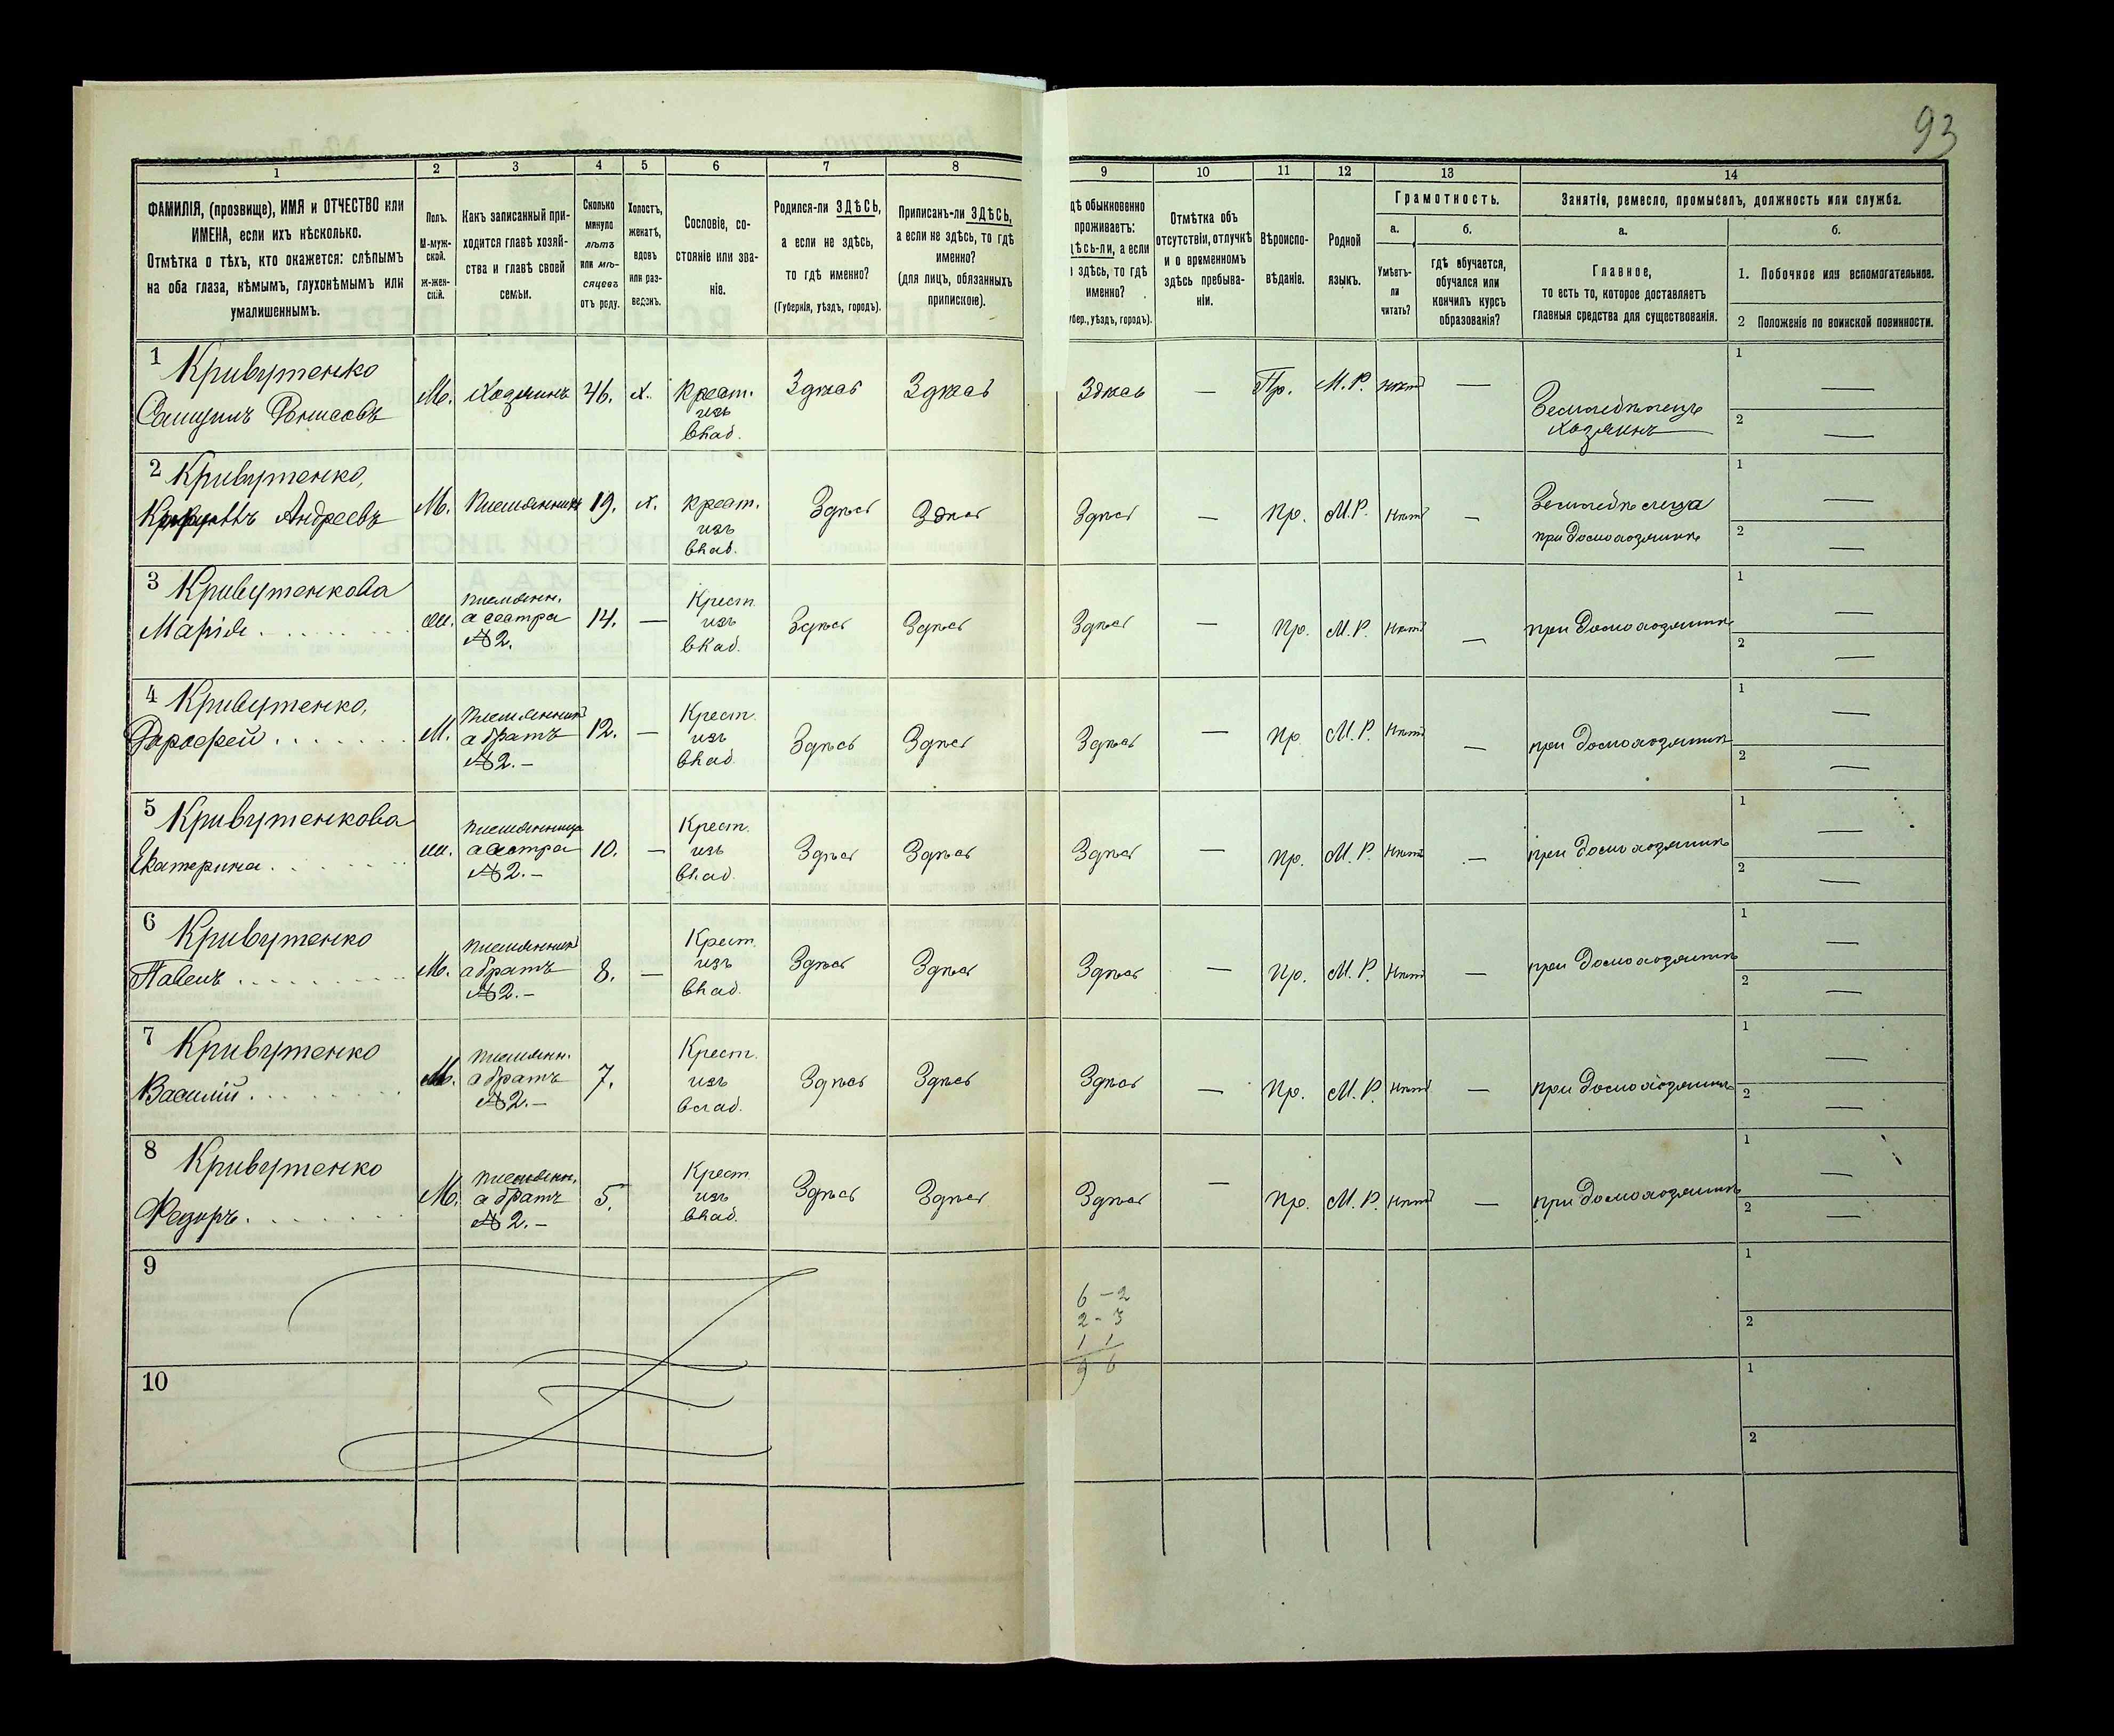 93
1 2 3 4 5 6 7 8 9 10 11 12 13 14
ФАМИЛІЯ, (прозвище), ИМЯ и ОТЧЕСТВО или
ИМЕНА, если ихъ нѣсколько.
Отмѣтка о тѣхъ, кто окажется: слѣпымъ
на оба глаза, нѣмымъ, глухонѣмымъ или
умалишеннымъ.
Полъ.
М-муж-
ской.
ж-жен-
скій.
Какъ записанный при-
ходится главѣ хозяй-
ства и главѣ своей
семьи.
Сколько
минуло
лѣтъ
или мѣ-
сяцевъ
отъ роду.
Холостъ,
женатъ,
вдовъ
или раз-
веденъ.
Сословіе, со-
стояніе или зва-
ніе.
Родился-ли ЗДѢСЬ,
а если не здѣсь,
то гдѣ именно?
(Губернія, уѣздъ, городъ).
Приписанъ-ли ЗДѢСЬ,
а если не здѣсь, то гдѣ
именно?
(для лицъ, обязанныхъ
припискою).
дѣ обыкновенно
проживаетъ:
дѣсь-ли, а если
здѣсь, то гдѣ
именно?
убер., уѣздъ, городъ).
Отмѣтка объ
отсутствіи, отлучкѣ
и о временномъ
здѣсь пребыва-
ніи.
Вѣроиспо-
вѣданіе.
Родной
языкъ.
Грамотность.
а.
Умѣетъ-
ли
читать?
б.
гдѣ обучается,
обучался или
кончилъ курсъ
образованія?
Занятіе, ремесло, промыселъ, должность или служба.
а.
Главное,
то есть то, которое доставляетъ
главныя средства для существованія.
б.
1. Побочное или вспомогательное.
2 Положеніе по воинской повинности.
1 Кривутенко
М. Хозяинъ 46. х. Крест. изъ влад. Здѣсь Здѣсь Здѣсь — Пр. М.Р. нѣтъ — Земледѣлецъ хозяинъ 1 — 2 —
2 Кривутенко,
Андреевъ М. Племянникъ 19. х. Крест. изъ влад. Здѣсь Здѣсь Здѣсь — Пр. М.Р. Нѣтъ — при домохозяинѣ 1 — 2 —
3 Кривутенкова
Марія 
Племянн. а сестра № 2. 14. — Крест. изъ влад. Здѣсь Здѣсь Здѣсь — Пр. М.Р. Нѣтъ — при домохозяинѣ 1 — 2 —
4 Кривутенко,
Дорофей М. Племянникъ а братъ № 2.- 12. — Крест. изъ влад. Здѣсь Здѣсь Здѣсь — Пр. М.Р. Нѣтъ — при домохозяинѣ 1 — 2 —
5 Кривутенкова
Екатерина 
Племянница а сестра № 2.- 10. — Крест. изъ влад. Здѣсь Здѣсь Здѣсь — Пр. М.Р. Нѣтъ — при домохозяинѣ 1 — 2 —
6 Кривутенко
Павелъ М. Племянникъ а братъ № 2.- 8. — Крест. изъ влад. Здѣсь Здѣсь Здѣсь — Пр. М.Р. Нѣтъ — при домохозяинѣ 1 — 2 —
7 Кривутенко
Василій М. Племянн. а братъ № 2.- 7. Крест. изъ влад. Здѣсь Здѣсь Здѣсь — Пр. М.Р. Нѣтъ — при домохозяинѣ 1 — 2 —
8 Кривутенко
Федоръ М. Племянн. а братъ № 2.- 5. Крест. изъ влад. Здѣсь Здѣсь Здѣсь — Пр. М.Р. Нѣтъ — при домохозяинѣ 1 — 2 —
9 1 2
6 - 2
2 - 3
1 1
9 6
10 1 2